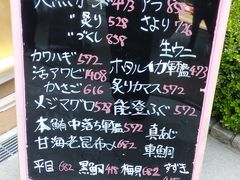 天然 473 アラ 858
〃炙り 528 さより 726
〃づくし 858
生ウニ
カワハギ 572 ホタルイカ軍艦 473
活アワビ 1408 炙りカマス 572
かさご 616 能登ふぐ 572
メジマグロ 528
本鮪中落ち軍艦 572 真あじ
甘海老昆布〆 682 車鯛
平目 682 黒鯛 418 梅貝 682 すずき